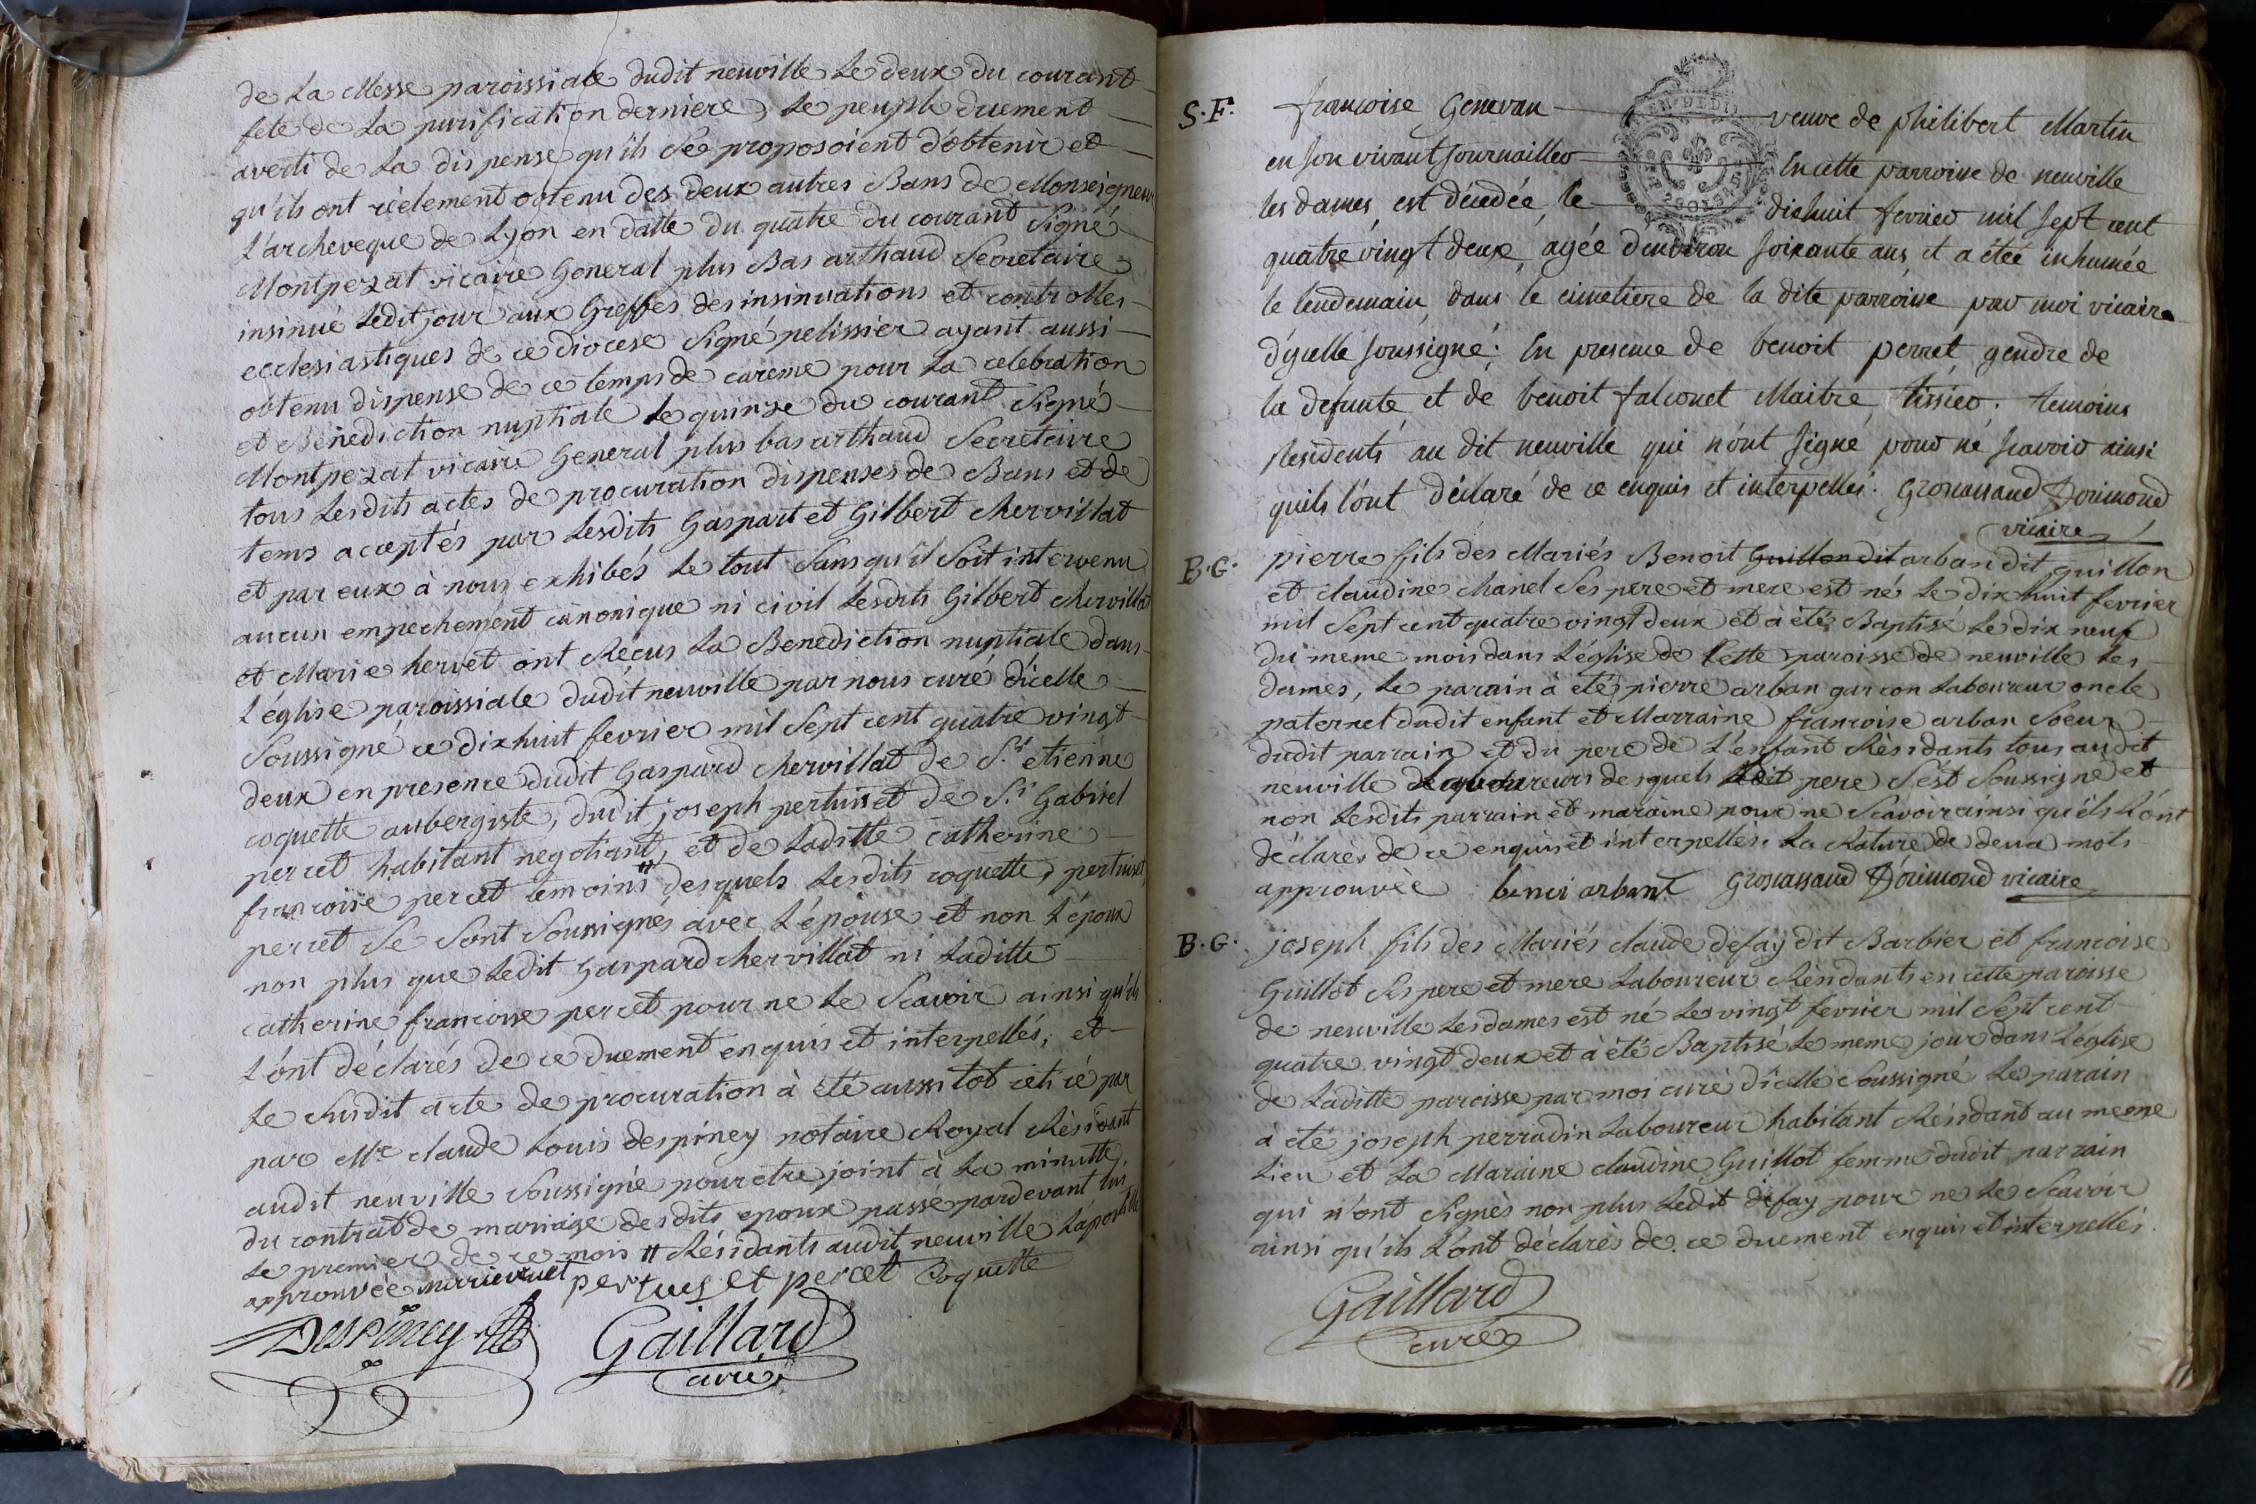 de La Messe paroissiale dudit neuville Le deux du courant
fete de La purification derniere, Le peuple duement
averti de La dispense qu'ils se proposoient d'obtenir et
qu'ils ont rèelement obtenu des deux autres Bans de Monseigneur
L'archeveque de Lyon en datte du quatre du courant Signé
Montpezat vicaire General plus Bas arthaud Secretaire
insinué Ledit jour aux Greffes des insinuations et controlles
ecclesiastiques de ce diocese Signé pelissier ayant aussi
obtenu dispense de ce temps de careme pour La celebration
et Bénediction nuptiale le quinze du courant Signé
Montpezat vicaire General plus bas arthaud Secretaire
tous Lesdits actes de procuration dispenses de Bans et de
tems acceptés par Lesdits Gaspart et Gilbert chervillat
et par eux à nous exhibés Le tout Sans qu'il Soit intervenu
aucun empechement canonique ni civil Lesdits Gilbert chervillat
et Marie hervet ont Rècus La Benediction nuptiale dans
L'église paroissiale dudit neuville par nous curé d'icelle
Soussigné ce dixhuit fevrier mil Sept cent quatre vingt
deux en presence dudit Gaspard chervillat de Sr etienne
coquette aubergiste, dudit joseph pertuiset de Sr Gabriel
percet habitant negotiant, et de Laditte catherine
francoise percet temoins # desquels Lesdits coquette, pertuiset,
percet Se Sont Soussignés avec L'épouse et non L'époux
non plus que Ledit Gaspard chervillat ni Laditte
catherine francoise percet pour ne Le Scavoir ainsi qu'ils
L'ónt déclarés de ce duement enquis et interpellés; et
Le Susdit acte de procuration à été aussi tot retiré par
par Mre claude Louis despiney notaire Royal Résidant
audit neuville Soussigné pour etre joint à La minutte
du contrat de mariage desdits epoux passé pardevant lui
Le premier de ce mois # Résidants audit neuville Lapostille
approuvée pertuiset percet Coquette
Despiney Gaillard
curé
S.F. francoise Genevan veuve de philibert Martin
en son vivant journaillier En cette parroisse de neuville
les dames, est décédée, le dixhuit fevrier mil sept cent
quatre vingt deux, agée d'environ soixante ans, et a étée inhumée
le lendemain, dans le cimetiere de la dite parroisse par moi vicaire
d'ycelle soussigné: En presence de benoit perret gendre de
la defunte et de benoit falconet Maitre tissier. temoins
Residents au dit neuville qui n'ont signé pour ne scavoir ainsi
quils l'ont déclaré de ce enquis et interpellés. Groscassand Dorimond
vicaire
B.G. pierre fils des Mariés Benoit Guillon dit arban dit guillon
et claudine chanel Ses pere et mere est né Le dix huit fevrier
mil Sept cent quatre vingt deux et à étés Baptisé Le dix neuf
du meme mois dans L'église de Cette paroisse de neuville Les
dames, Le parain à été pierre arban garcon Laboureur oncle
paternel dudit enfant et Marraine francoise arban Soeur
dudit parrain et du pere de L'enfant Résidants tous audit
neuville desquels pere S'est Soussigné et
non Lesdits parrain et maraine pour ne Scavoir ainsi qu'éls L'ónt
déclarés de ce enquis et interpellés. La Rature de deux mots
approuvée benoi arbant Groscassand Dorimond vicaire
B.G. joseph fils des Mariés claude defay dit Barbier et francoise
Guillot Ses pere et mere Laboureur Résidants en cette paroisse
de neuville Les dames est né Le vingt fevrier mil Sept cent
quatre vingt deux et à été Baptisé Le meme jour dans L'église
de Laditte paroisse par moi curé d'icelle Soussigné Le parain
à été joseph perradin Laboureur habitant Résidant au meme
Lieu et La Maraine claudine Guillot femme dudit parrain
qui n'ónt Signés non plus Ledit defay pour ne Le Scavoir
ainsi qu'ils L'ont déclarés de ce duement enquis et interpellés.
Gaillard
curé